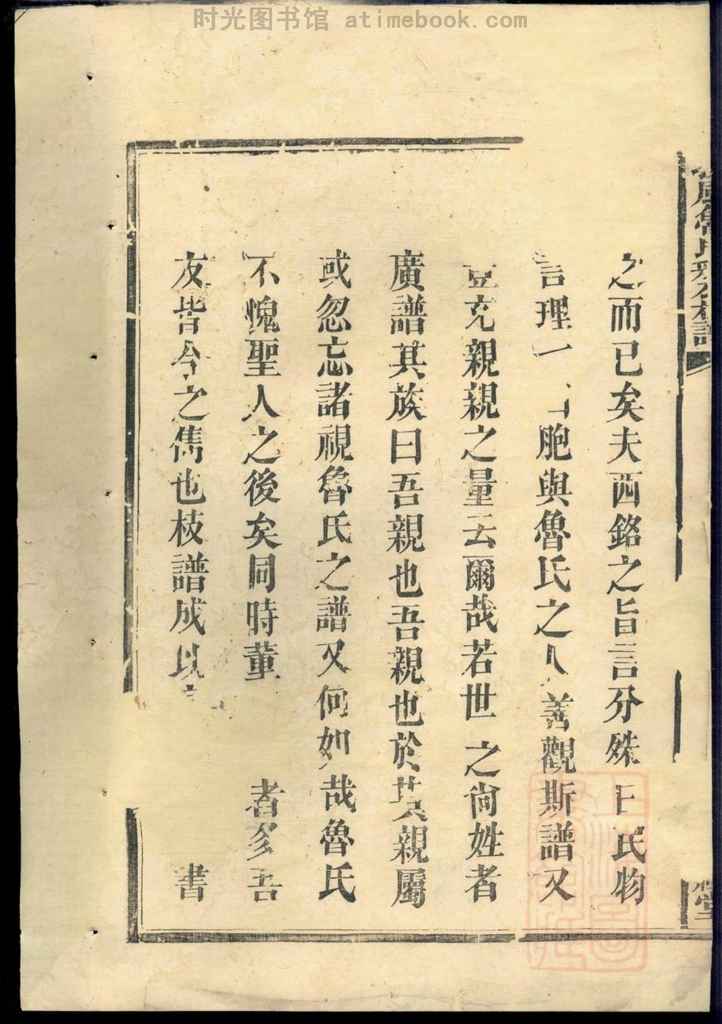 时光图书馆 atimebook.com
之而已矣夫西銘之旨言分殊曰民物
言理一曰胞與魯氏之人善觀斯譜又
豈充親親之量云爾哉若世之尚姓者
廣譜其族曰吾親也吾親也於其親屬
或忽忘諸視魯氏之譜又何如哉魯氏
不愧聖人之後矣同時董 者多吾
友皆今之雋也枝譜成以 書